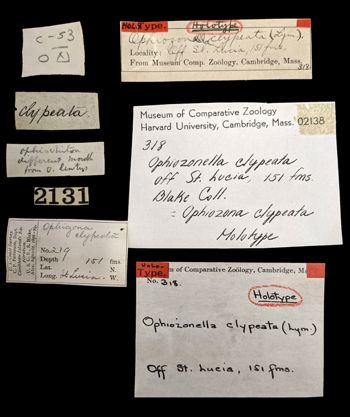 C-53
clypeata.
ophiolepis
different mouth
from O.
2131
Ophiozona
clypeata
No. 219
Depth 151 fms.
Lat. N.
Long. St Lucia. W.
Holo-
Type.
Holotype
Ophiozona clypeata (Lym.)
Locality: Off St. Lucia, 151 fms.
From Museum Comp. Zoology, Cambridge, Mass.
318
Museum of Comparative Zoology
Harvard University, Cambridge, Mass. 02138
318
Ophiozonella clypeata
off St. Lucia, 151 fms.
Blake Coll.
= Ophiozona clypeata
Holotype
Holo-
Type.
m of Comparative Zoölogy, Cambridge, M
No. 318.
Holotype
Ophiozonella clypeata (Lym.)
Off St. Lucia, 151 fms.